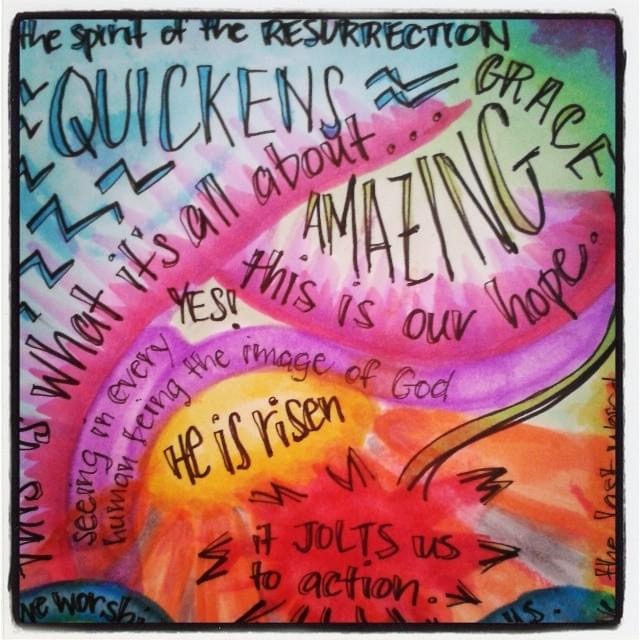 the spirit of the RESURRECTION
QUICKENS
GRACE
AMAZING
this is what it's all about...
this is our hope.
YES!
seeing in every
human being the image of God
He is risen
it JOLTS us
to action.
we worship
us.
the last word